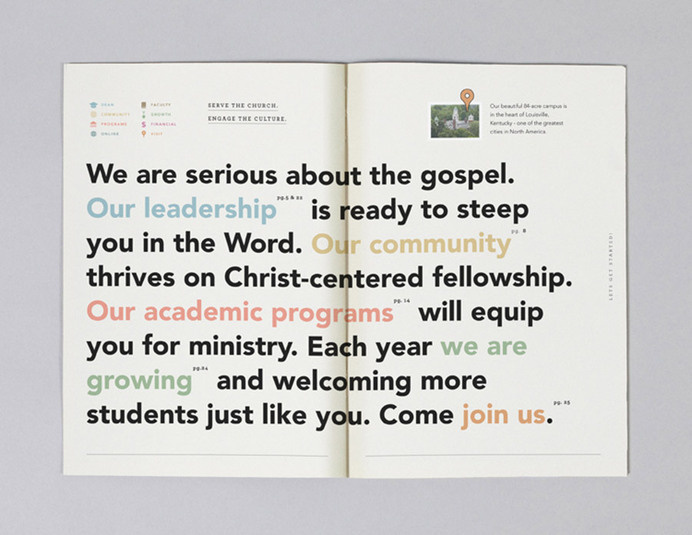 DEAN
COMMUNITY
PROGRAMS
ONLINE
FACULTY
GROWTH
FINANCIAL
VISIT
SERVE THE CHURCH.
ENGAGE THE CULTURE.
Our beautiful 84-acre campus is
in the heart of Louisville,
Kentucky - one of the greatest
cities in North America.
We are serious about the gospel.
Our leadership pg.5 & 22 is ready to steep
you in the Word. Our community pg. 8
thrives on Christ-centered fellowship.
Our academic programs pg. 14 will equip
you for ministry. Each year we are
growing pg.24 and welcoming more
students just like you. Come join us. pg. 25
LETS GET STARTED!